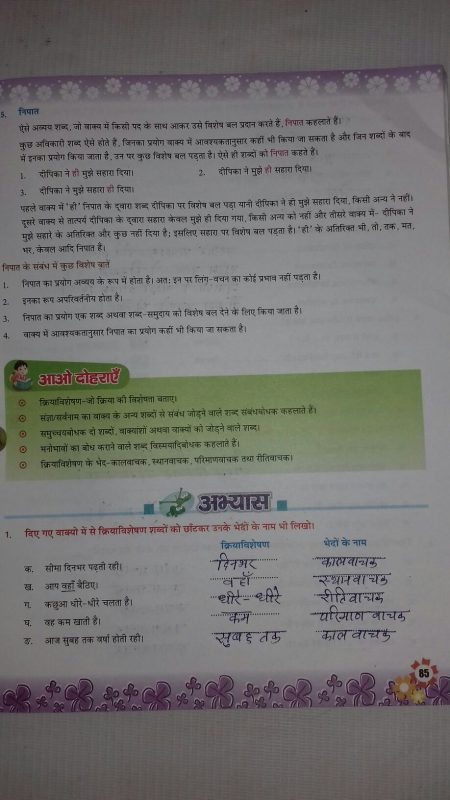 5. निपात
ऐसे अव्यय शब्द, जो वाक्य में किसी पद के साथ आकर उसे विशेष बल प्रदान करते हैं, निपात कहलाते हैं।
कुछ अविकारी शब्द ऐसे होते हैं, जिनका प्रयोग वाक्य में आवश्यकतानुसार कहीं भी किया जा सकता है और जिन शब्दों के बाद
में इनका प्रयोग किया जाता है, उन पर कुछ विशेष बल पड़ता है। ऐसे ही शब्दों को निपात कहते हैं।
1. दीपिका ने ही मुझे सहारा दिया। 2. दीपिका ने मुझे ही सहारा दिया।
3. दीपिका ने मुझे सहारा ही दिया।
पहले वाक्य में 'ही' निपात के द्वारा शब्द दीपिका पर विशेष बल पड़ा यानी दीपिका ने ही मुझे सहारा दिया, किसी अन्य ने नहीं।
दूसरे वाक्य से तात्पर्य दीपिका के द्वारा सहारा केवल मुझे ही दिया गया, किसी अन्य को नहीं और तीसरे वाक्य में- दीपिका ने
मुझे सहारे के अतिरिक्त और कुछ नहीं दिया है; इसलिए सहारा पर विशेष बल पड़ता है। 'ही' के अतिरिक्त भी, तो, तक, मत,
भर, केवल आदि निपात हैं।
निपात के संबंध में कुछ विशेष बातें
1. निपात का प्रयोग अव्यय के रूप में होता है। अतः इन पर लिंग-वचन का कोई प्रभाव नहीं पड़ता है।
2. इनका रूप अपरिवर्तनीय होता है।
3. निपात का प्रयोग एक शब्द अथवा शब्द-समुदाय को विशेष बल देने के लिए किया जाता है।
4. वाक्य में आवश्यकतानुसार निपात का प्रयोग कहीं भी किया जा सकता है।
आओ दोहराएँ
क्रियाविशेषण-जो क्रिया की विशेषता बताए।
संज्ञा/सर्वनाम का वाक्य के अन्य शब्दों से संबंध जोड़ने वाले शब्द संबंधबोधक कहलाते हैं।
समुच्चयबोधक दो शब्दों, वाक्यांशों अथवा वाक्यों को जोड़ने वाले शब्द।
मनोभावों का बोध कराने वाले शब्द विस्मयादिबोधक कहलाते हैं।
क्रियाविशेषण के भेद-कालवाचक, स्थानवाचक, परिमाणवाचक तथा रीतिवाचक।
अभ्यास
1. दिए गए वाक्यों में से क्रियाविशेषण शब्दों को छाँटकर उनके भेदों के नाम भी लिखो।
क्रियाविशेषण भेदों के नाम
क. सीमा दिनभर पढ़ती रही। दिनभर कालवाचक
ख. आप वहाँ बैठिए। वहाँ स्थानवाचक
ग. कछुआ धीरे-धीरे चलता है। धीरे-धीरे रीतिवाचक
घ. वह कम खाती है। कम परिमाणवाचक
ङ. आज सुबह तक वर्षा होती रही। सुबह तक कालवाचक
85